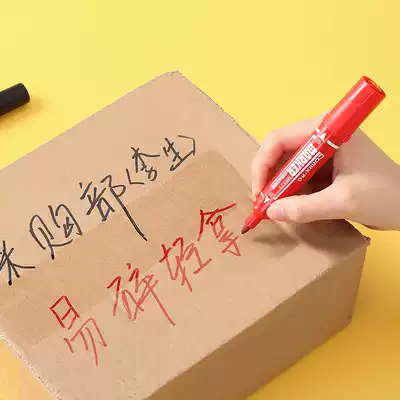 采购部(李生)
易碎轻拿
MARKER